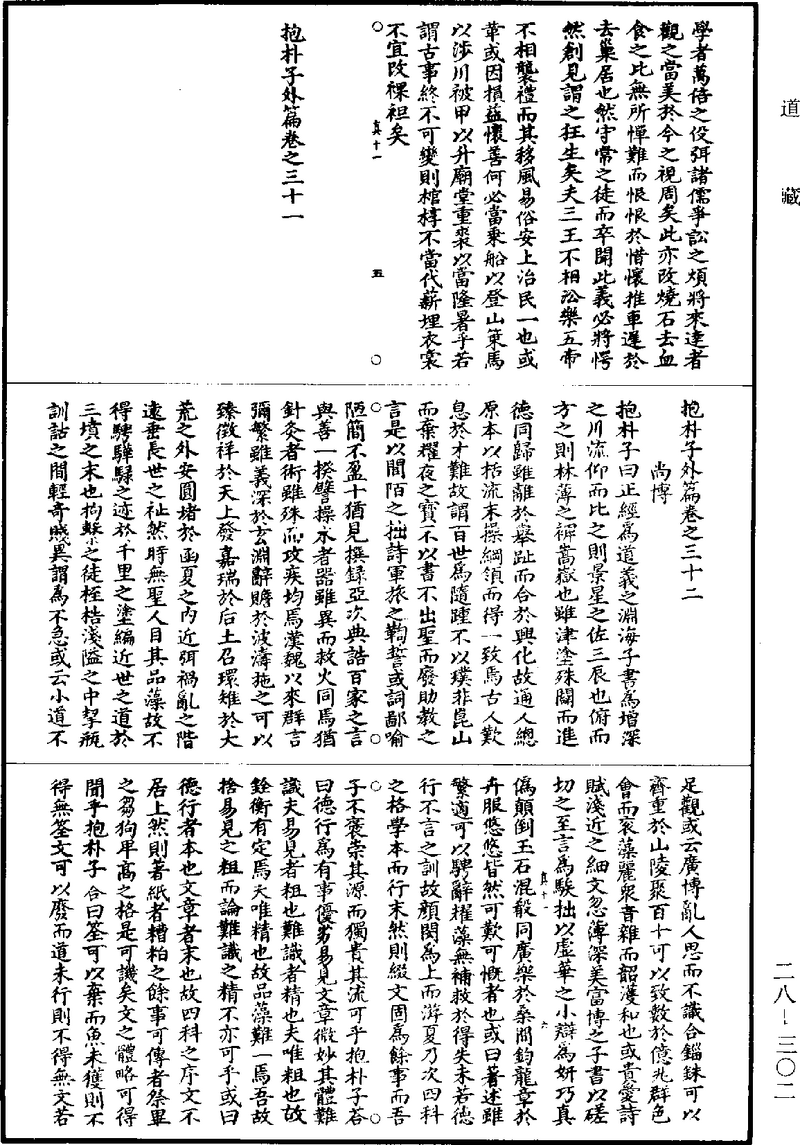 道藏
學者萬倍之役弭諸儒爭訟之煩將來達者
觀之當美於今之視周矣此亦改燒石去血
食之比無所憚難而恨恨於惜懷推車遲於
去巢居也然守常之徒而卒聞此義必將愕
然創見謂之狂生矣夫三王不相㳂樂五帝
不相襲禮而其移風易俗安上治民一也或
革或因損益懷善何必當乘船以登山策馬
以涉川被甲以升廟堂重裘以當隆暑乎若
謂古事終不可變則棺槨不當代薪埋衣裳
不宜改裸袒矣
真十一
五
抱朴子外篇卷之三十一
抱朴子外篇卷之三十二
尚博
抱朴子曰正經為道義之淵海子書為增深
之川流仰而比之則景星之佐三辰也俯而
方之則林薄之裨嵩嶽也雖津塗殊闢而進
德同歸雖離於舉趾而合於興化故通人總
原本以括流末操綱領而得一致焉古人歎
息於才難故謂百世為隨踵不以璞非崑山
而棄耀夜之寶不以書不出聖而廢助教之
言是以閭陌之拙詩軍旅之鞫誓或詞鄙喻
陋簡不盈十猶見撰録亞次典誥百家之言
與善一揆譬操水者器雖異而救火同焉猶
針灸者術雖殊而攻疾均焉漢魏以來群言
彌繁雖義深於玄淵辭贍於波濤施之可以
臻徵祥於天上發嘉瑞於后土召環雉於大
荒之外安圓堵於函夏之內近弭禍亂之階
遠垂長世之祉然時無聖人目其品藻故不
得騁驊騄之迹於千里之塗編近世之道於
三墳之末也拘繫之徒桎梏淺隘之中挈瓶
訓詁之間輕奇賤異謂為不急或云小道不
足觀或云廣博亂人思而不識合錙銖可以
齊重於山陵聚百十可以致數於億兆群色
會而衮藻麗衆音雜而韶濩和也或貴愛詩
賦淺近之細文忽薄深美富博之子書以磋
切之至言為騃拙以虛華之小辯為妍巧真
偽顛倒玉石混殽同廣樂於桑間鈞龍章於
卉服悠悠皆然可歎可慨者也或曰著述雖
真十一
六
繁適可以騁辭耀藻無補救於得失未若德
行不言之訓故顏閔為上而游夏乃次四科
之格學本而行末然則綴文固為餘事而吾
子不褒崇其源而獨貴其流可乎抱朴子荅
曰德行為有事優劣易見文章微妙其體難
識夫易見者粗也難識者精也夫唯粗也故
銓衡有定焉夫唯精也故品藻難一焉吾故
捨易見之粗而論難識之精不亦可乎或曰
德行者本也文章者末也故四科之序文不
居上然則著紙者糟粕之餘事可傳者祭畢
之芻狗卑高之格是可譏矣文之體略可得
聞乎抱朴子荅曰筌可以棄而魚未獲則不
得無筌文可以廢而道未行則不得無文若
二八-三〇二